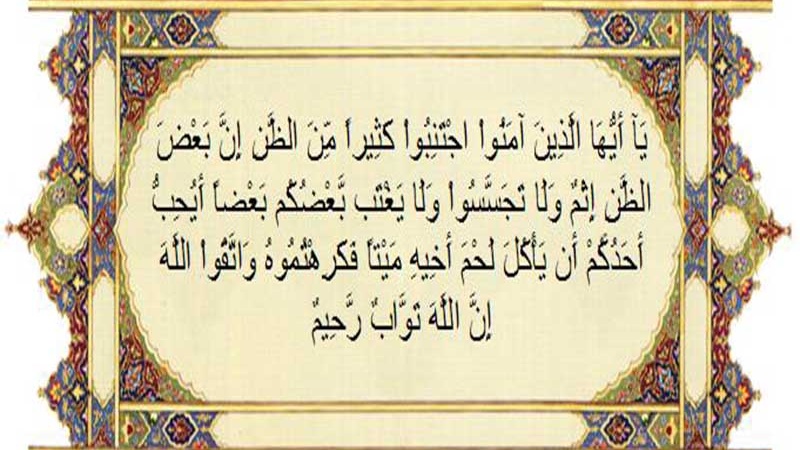 يَآ أَيُّهَا الَّذِينَ آمَنُواْ اجْتَنِبُواْ كَثِيراً مِّنَ الظَّنِّ إِنَّ بَعْضَ
الظَّنِّ إِثْمٌ وَلَا تَجَسَّسُواْ وَلَا يَغْتَب بَّعْضُكُم بَعْضاً أَيُحِبُّ
أَحَدُكُمْ أَن يَأْكُلَ لَحْمَ أَخِيهِ مَيْتاً فَكَرِهْتُمُوهُ وَاتَّقُواْ اللَّهَ
إِنَّ اللَّهَ تَوَّابٌ رَّحِيمٌ